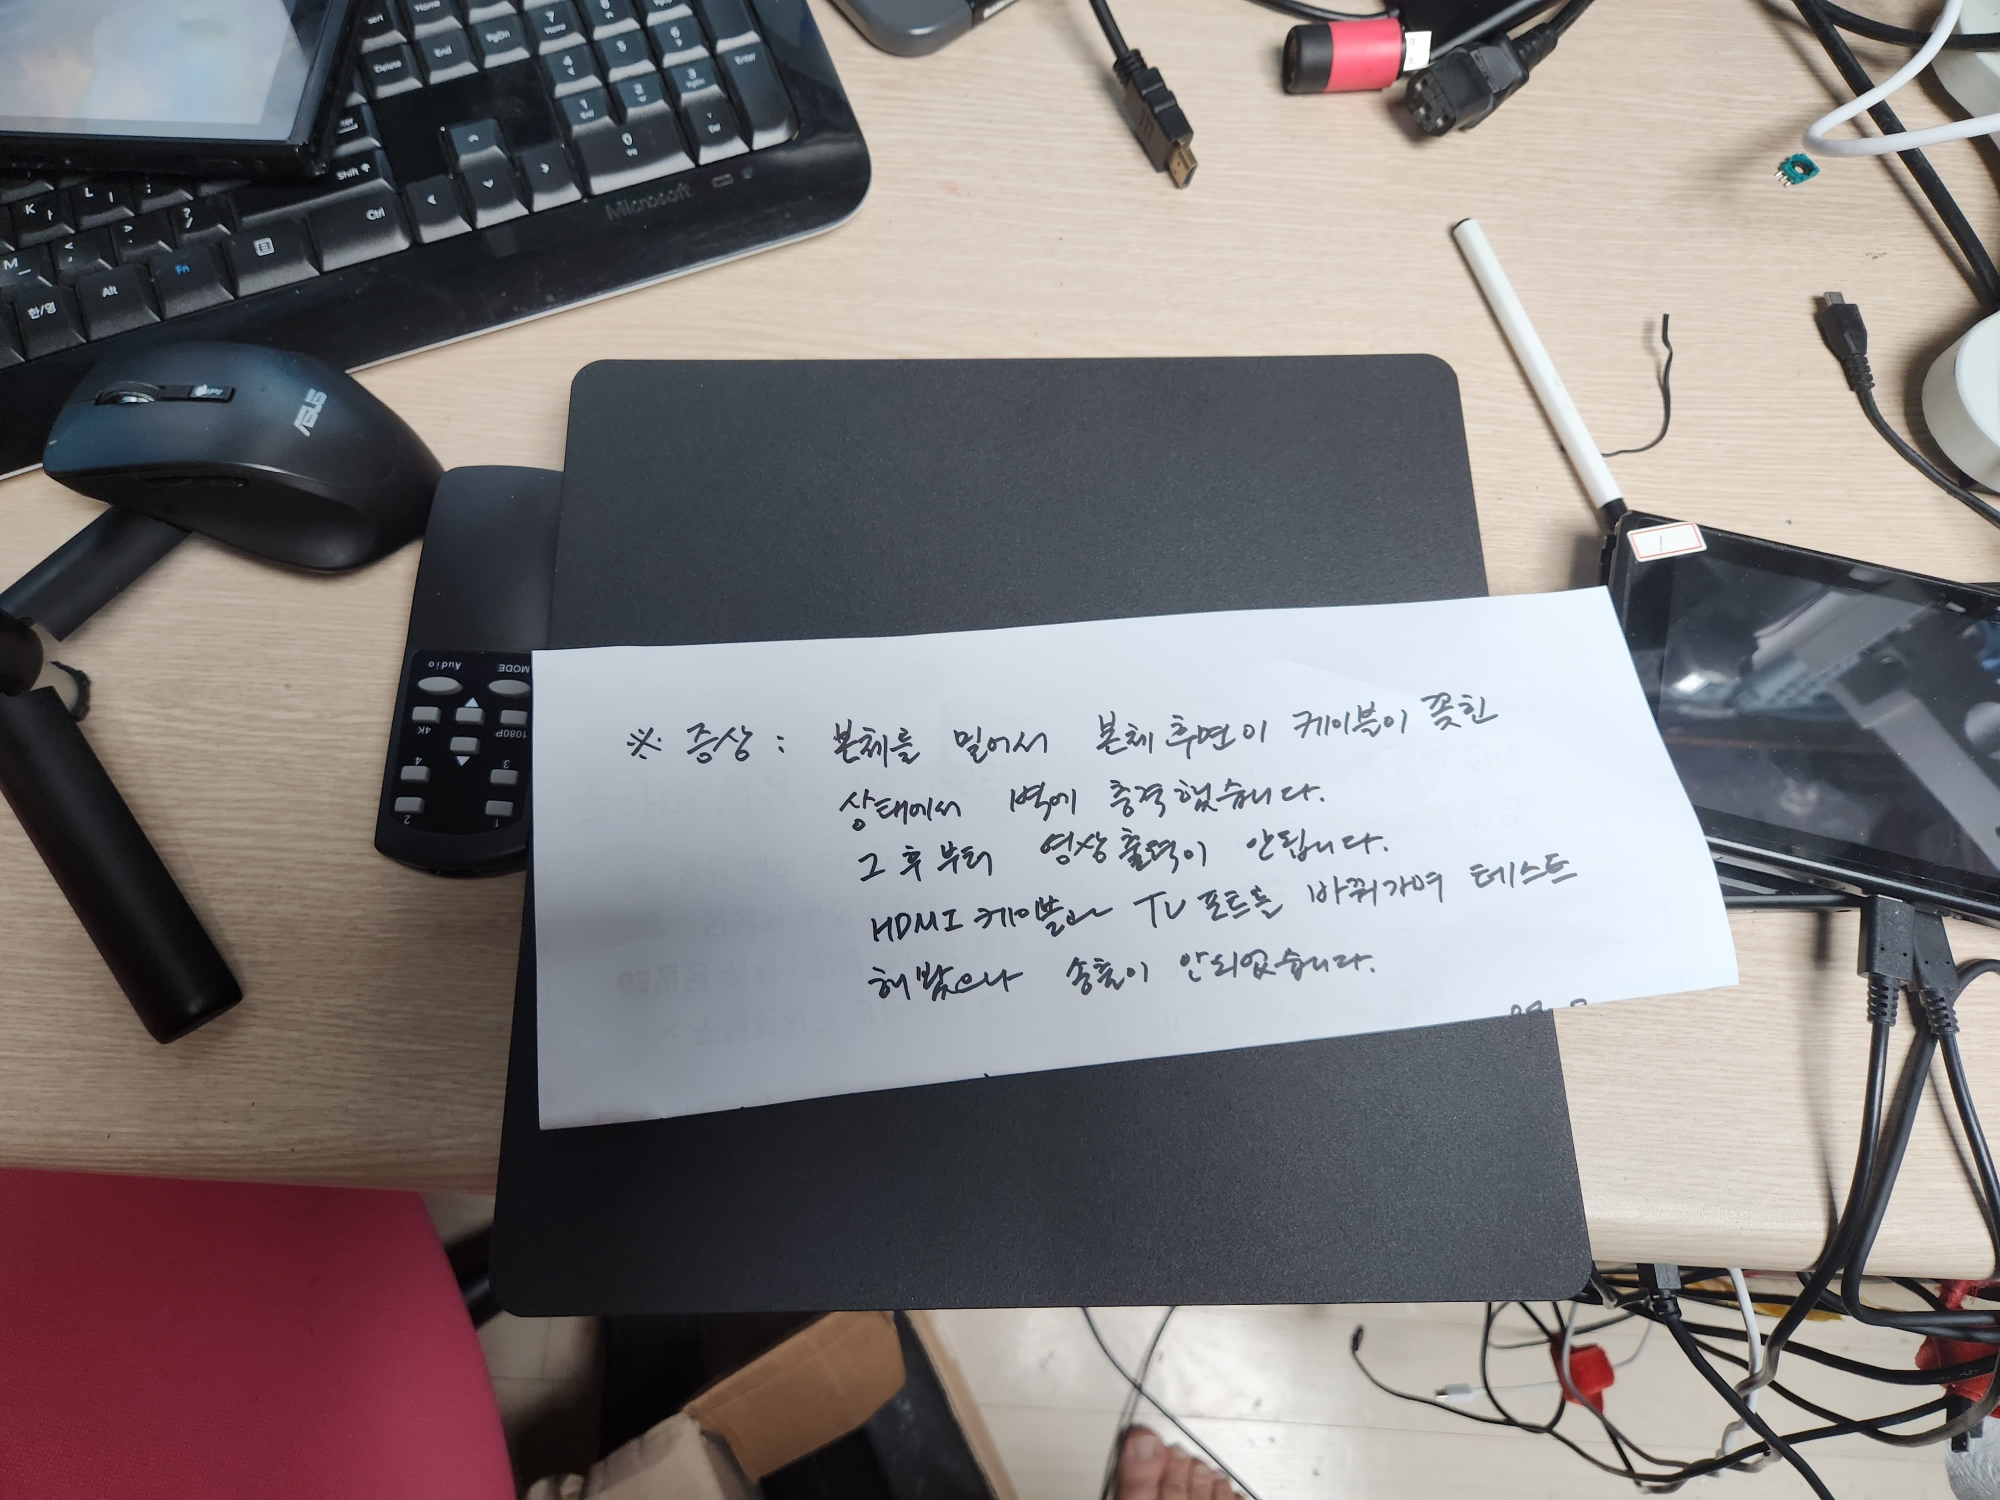 Home
Delete
End
PgDn
7
Home
4
5
6
1
End
2
3
PgDn
Enter
0
Ins
Del
Shift
K ㅏ
L ㅣ
M ㅡ
Ctrl
Fn
Alt
한/영
Microsoft
ASUS
Audio
MODE
4K
1080P
4
3
2
1
1
※ 증상 : 본체를 밀어서 본체 후면이 케이블이 꽂힌
상태에서 벽에 충격했습니다.
그 후부터 영상 출력이 안됩니다.
HDMI 케이블과 TV 포트를 바꿔가며 테스트
해 봤으나 송출이 안되었습니다.